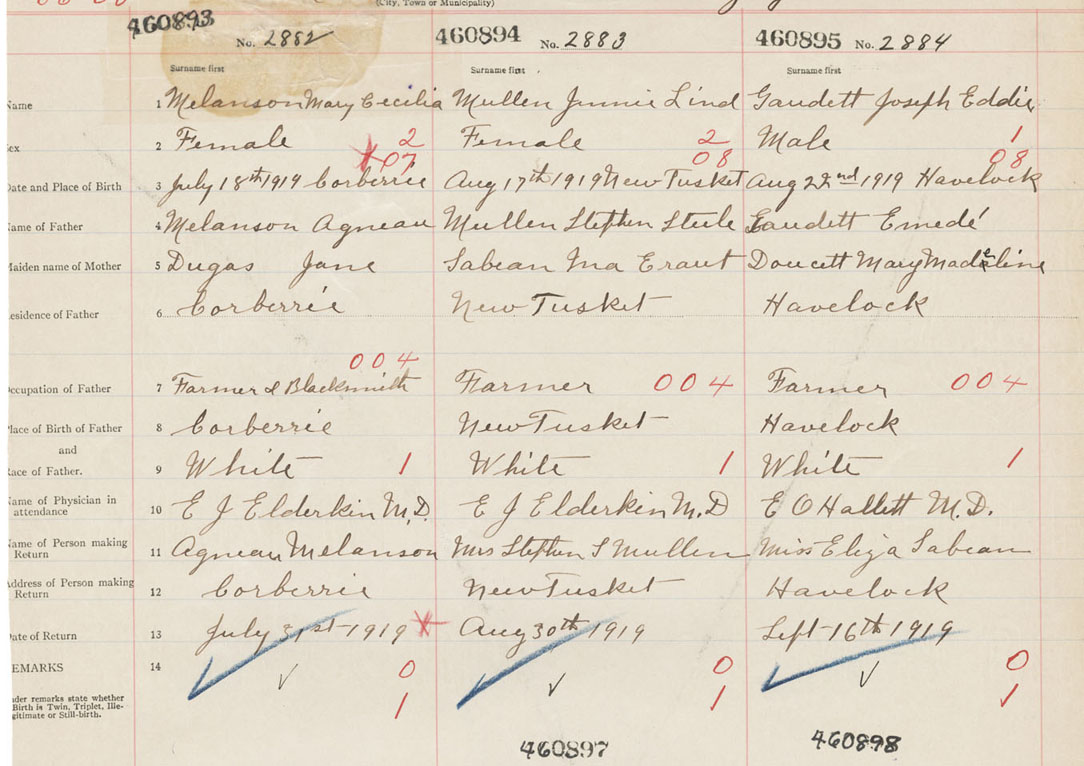 (City, Town or Municipality)
460893 No. 2882 460894 No. 2883 460895 No. 2884
Surname first Surname first Surname first
Name 1 Melanson Mary Cecilia Mullen Jennie Lind Gaudett Joseph Eddie
Sex 2 Female 2 Female 2 Male 1
07 08 08
Date and Place of Birth 3 July 18th 1919 Corberrie Aug 17th 1919 New Tusket Aug 22nd 1919 Havelock
Name of Father 4 Melanson Agneau Mullen Stephen Steele Gaudett Emedé
Maiden name of Mother 5 Dugas Jane Sabean Ina Doucett Mary Madeline
Residence of Father 6 Corberrie New Tusket Havelock
004
Occupation of Father 7 Farmer & Blacksmith Farmer 004 Farmer 004
Place of Birth of Father 8 Corberrie New Tusket Havelock
and
Race of Father. 9 White 1 White 1 White 1
Name of Physician in attendance 10 E J Elderkin M.D. E J Elderkin M.D E O Hallett M.D.
Name of Person making Return 11 Agneau Melanson Mrs Stephen S Mullen Miss Eliza Sabean
Address of Person making Return 12 Corberrie New Tusket Havelock
Date of Return 13 July 31st 1919 Aug 30th 1919 Sept 16th 1919
REMARKS 14 0 0 0
Under remarks state whether
Birth is Twin, Triplet, Ille-
gitimate or Still-birth. 1 1 1
460897 460898